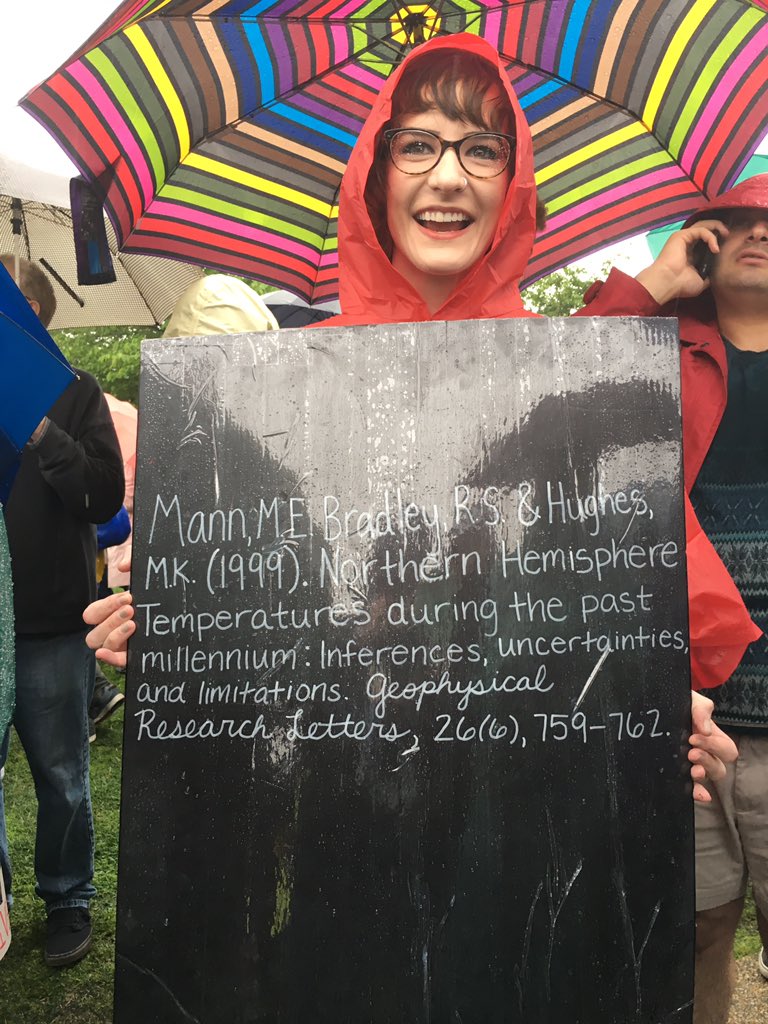 Mann, M.E. Bradley, R.S. & Hughes,
M.K. (1999). Northern Hemisphere
Temperatures during the past
millennium: Inferences, uncertainties,
and limitations. Geophysical
Research Letters, 26(6), 759-762.